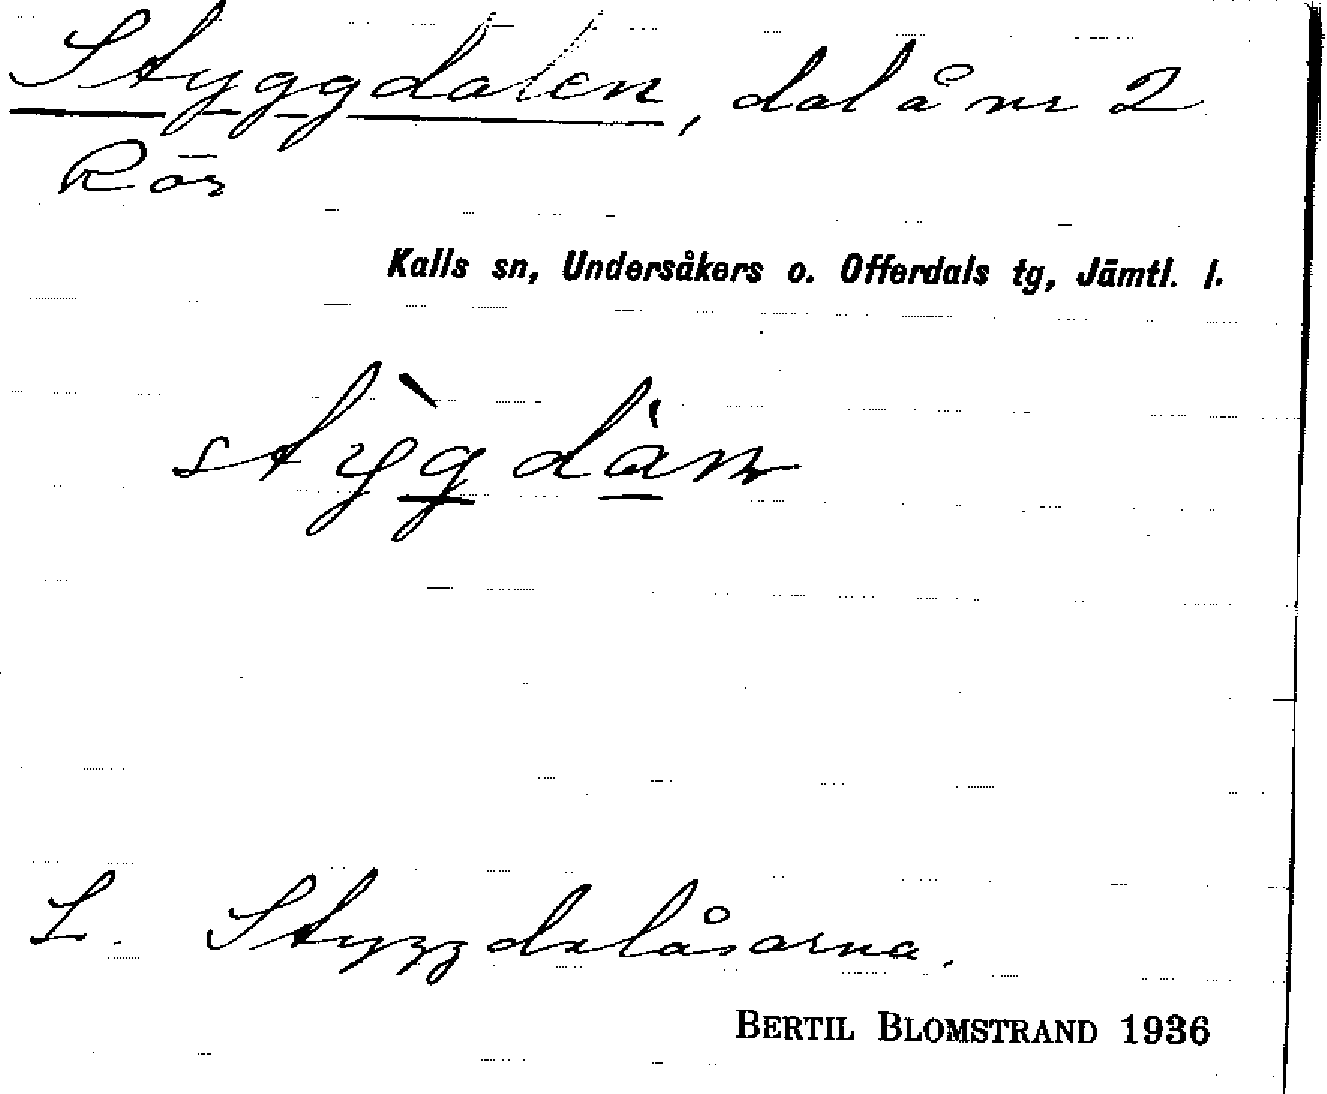 Styggdalen, dal å nr 2
Rör
Kalls sn, Undersåkers o. Offerdals tg, Jämtl. l.
stỳgdàn
L. Styggdalåsarna.
BERTIL BLOMSTRAND 1936